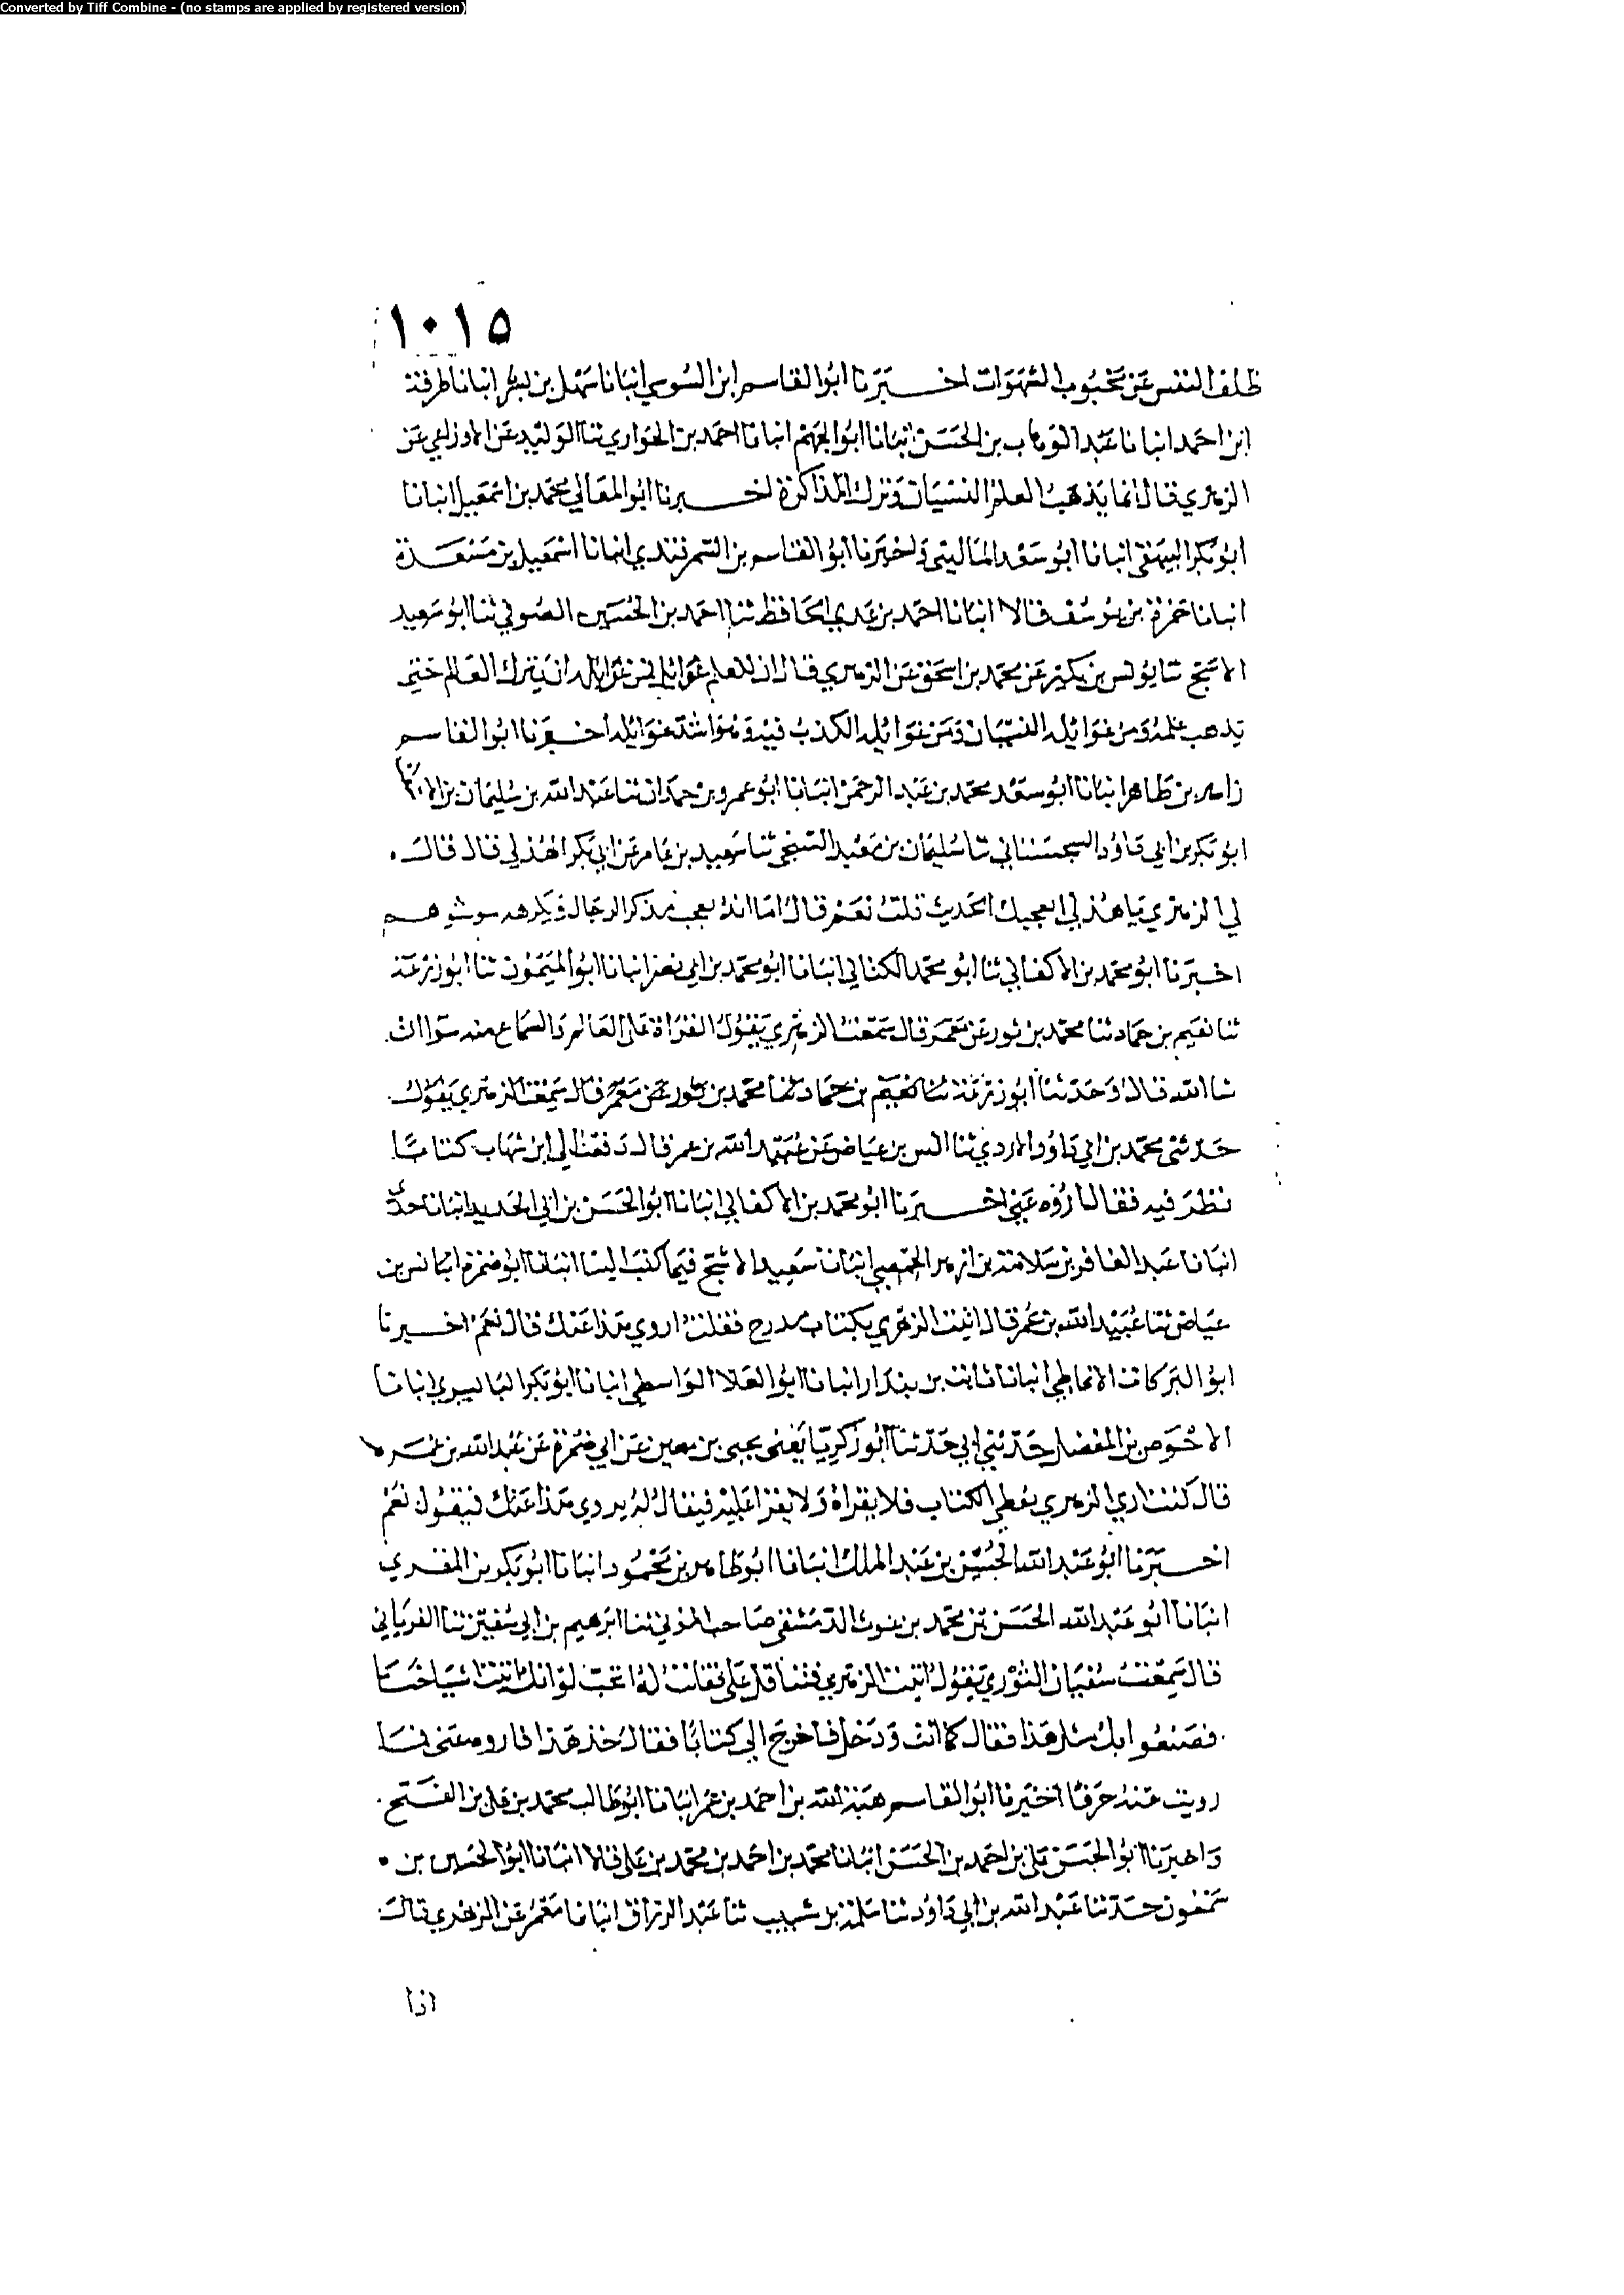 Converted by Tiff Combine - (no stamps are applied by registered version)
١٠١٥
ظلف النفس عن محبوب الشهوات اخبرنا ابو القاسم ابن السوسي انبانا سهل بن بشر انبانا طرفة
ابن احمد انبانا عبد الوهاب بن الحسن انبانا ابو الجهم انبانا احمد بن الحواري ثنا الوليد عن الاوزاعي عن
الزهري قال انما يذهب العلم النسيان وترك المذاكرة اخبرنا ابو المعالي محمد بن اسمعيل انبانا
ابو بكر البيهقي انبانا ابو سعد الماليني واخبرنا ابو القاسم بن السمرقندي انبانا اسمعيل بن مسعدة
انبانا حمزة بن يوسف قالا انبانا احمد بن عدي الحافظ ثنا احمد بن الحسين الصوفي ثنا ابو سعيد
الاشج ثنا يونس بن بكير عن محمد بن اسحق عن الزهري قال ان للعلم غوائل فمن غوائله ان يترك العالم حتى
يذهب علمه ومن غوائله النسيان ومن غوائله الكذب فيه وهو اشد غوائله اخبرنا ابو القاسم
زاهر بن طاهر انبانا ابو سعد محمد بن عبد الرحمن انبانا ابو عمرو بن حمدان ثنا عبد الله بن سليمان بن
ابو بكر بن ابي داود السجستاني ثنا سليمان بن معبد السنجي ثنا سعيد بن عامر عن ابي بكر الهذلي قال قال
لي الزهري يا هذلي ايعجبك الحديث قلت نعم قال اما انه يعجب مذكر الرجال ويكرهه
اخبرنا ابو محمد بن الاكفاني ثنا ابو محمد الكتاني انبانا ابو محمد بن ابي نصر انبانا ابو الميمون ثنا ابو زرعة
ثنا نعيم بن حماد ثنا محمد بن ثور عن معمر قال سمعت الزهري يقول القراة على العالم والسماع منه سوا ان
شا الله قال وحدثنا ابو زرعة ثنا نعيم بن حماد ثنا محمد بن ثور عن معمر قال سمعت الزهري يقول
حدثني محمد بن ابي داود الازدي ثنا انس بن عياض عن عبيد الله بن عمر قال دفعت الي ابن شهاب كتابا
نظر فيه فقال اروه عني اخبرنا ابو محمد بن الاكفاني انبانا ابو الحسن بن ابي الحديد انبانا جدي
انبانا عبد الغافر بن سلامة بن ازهر الحمصي انبانا سعيد الاشج فيما كتب الينا انبانا ابو ضمرة انس بن
عياض ثنا عبيد الله بن عمر قال اتيت الزهري بكتاب مدرج فقلت اروي هذا عنك قال نعم اخبرنا
ابو البركات الانماطي انبانا ثابت بن بندار انبانا ابو العلا الواسطي انبانا ابو بكر البابسيري انبانا
الاحوص بن المفضل حدثني ابي حدثنا ابو زكريا يعنى يحيى بن معين عن ابي ضمرة عن عبد الله بن عمر
قال كنت اري الزهري يعطى الكتاب فلا يقراه ولا يقرا عليه فيقال له يروي هذا عنك فيقول نعم
اخبرنا ابو عبد الله الحسين بن عبد الملك انبانا ابو طاهر بن محمود انبانا ابو بكر بن المقري
انبانا ابو عبد الله الحسن بن محمد بن غوث الدمشقي صاحب المزني ثنا ابرهيم بن ابي سفين ثنا الفريابي
قال سمعت سفيان الثوري يقول اتيت الزهري فتثاقل علي فقلت له اتحب لو انك اتيت مشايخنا
فصنعوا بك مثل هذا فقال كما انت ودخل فاخرج الي كتابا فقال خذ هذا فاروه عنى فما
رويت عنه حرفا اخبرنا ابو القاسم هبة الله بن احمد بن عمر انبانا ابو طالب محمد بن علي بن الفتح
واخبرنا ابو الحسن علي بن احمد بن الحسن انبانا محمد بن احمد بن محمد بن علي قالا انبانا ابو الحسين بن
سمعون حدثنا عبد الله بن ابي داود ثنا سلمة بن شبيب ثنا عبد الرزاق انبانا معمر عن الزهري قال
اذا